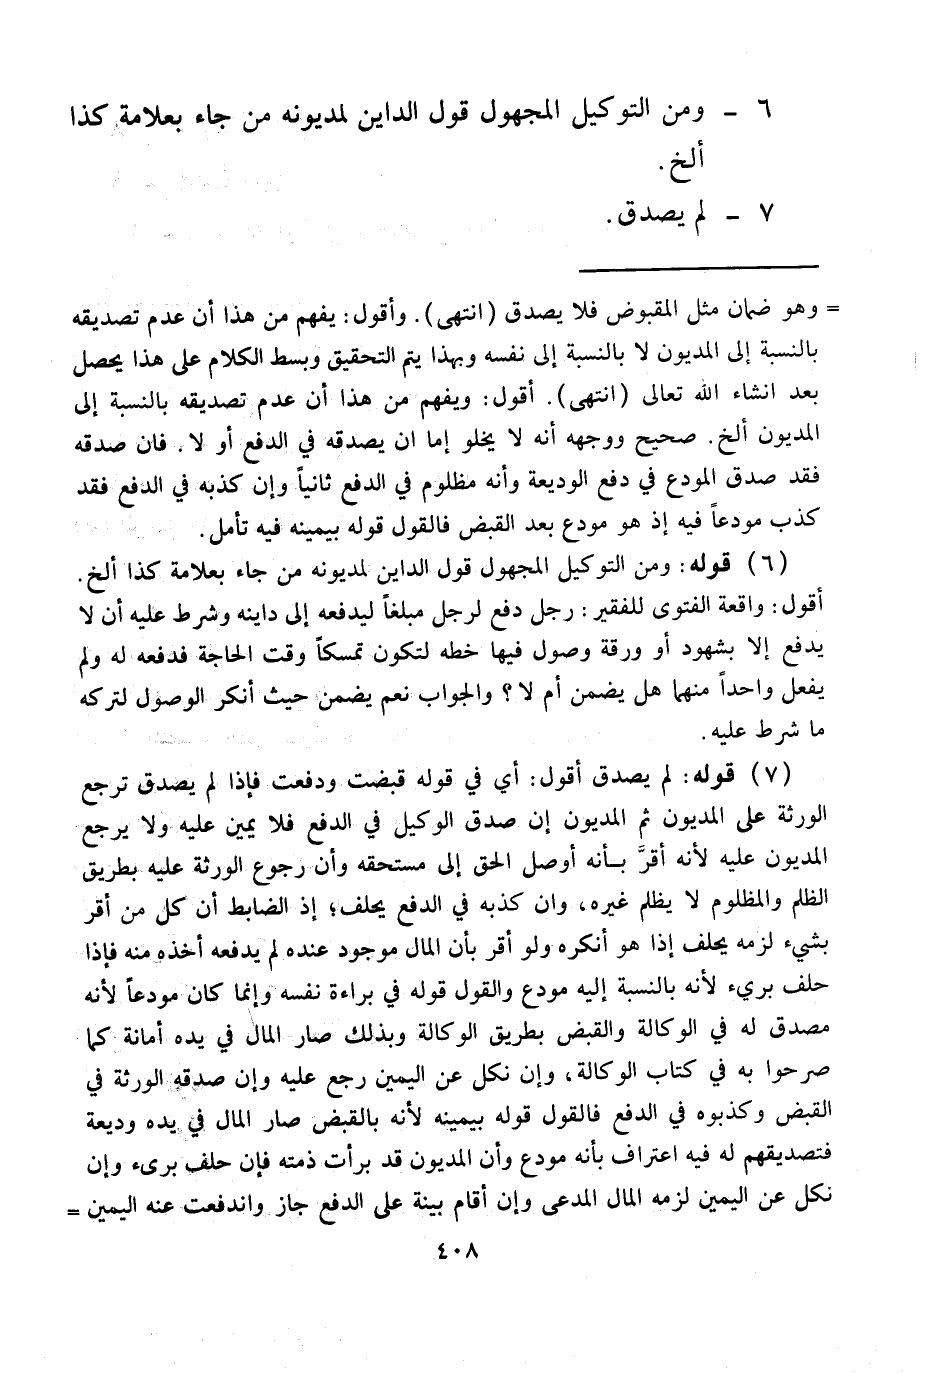 ٦ - ومن التوكيل المجهول قول الداين لمديونه من جاء بعلامة كذا
ألخ.
٧ - لم يصدق.
= وهو ضمان مثل المقبوض فلا يصدق (انتهى). وأقول: يفهم من هذا أن عدم تصديقه
بالنسبة إلى المديون لا بالنسبة إلى نفسه وبهذا يتم التحقيق وبسط الكلام على هذا يحصل
بعد انشاء الله تعالى (انتهى). أقول: ويفهم من هذا أن عدم تصديقه بالنسبة إلى
المديون ألخ. صحيح ووجهه أنه لا يخلو إما ان يصدقه في الدفع أو لا. فان صدقه
فقد صدق المودع في دفع الوديعة وأنه مظلوم في الدفع ثانياً وإن كذبه في الدفع فقد
كذب مودعاً فيه إذ هو مودع بعد القبض فالقول قوله بيمينه فيه تأمل.
(٦) قوله: ومن التوكيل المجهول قول الداين لمديونه من جاء بعلامة كذا ألخ.
أقول: واقعة الفتوى للفقير: رجل دفع لرجل مبلغاً ليدفعه إلى داينه وشرط عليه أن لا
يدفع إلا بشهود أو ورقة وصول فيها خطه لتكون تمسكاً وقت الحاجة فدفعه له ولم
يفعل واحداً منهما هل يضمن أم لا؟ والجواب نعم يضمن حيث أنكر الوصول لتركه
ما شرط عليه.
(٧) قوله: لم يصدق أقول: أي في قوله قبضت ودفعت فإذا لم يصدق ترجع
الورثة على المديون ثم المديون إن صدق الوكيل في الدفع فلا يمين عليه ولا يرجع
المديون عليه لأنه أقرَّ بأنه أوصل الحق إلى مستحقه وأن رجوع الورثة عليه بطريق
الظلم والمظلوم لا يظلم غيره، وان كذبه في الدفع يحلف؛ إذ الضابط أن كل من أقر
بشيء لزمه يحلف إذا هو أنكره ولو أقر بأن المال موجود عنده لم يدفعه أخذه منه فإذا
حلف بريء لأنه بالنسبة إليه مودع والقول قوله في براءة نفسه وإنما كان مودعاً لأنه
مصدق له في الوكالة والقبض بطريق الوكالة وبذلك صار المال في يده أمانة كما
صرحوا به في كتاب الوكالة، وإن نكل عن اليمين رجع عليه وإن صدقه الورثة في
القبض وكذبوه في الدفع فالقول قوله بيمينه لأنه بالقبض صار المال في يده وديعة
فتصديقهم له فيه اعتراف بأنه مودع وأن المديون قد برأت ذمته فإن حلف برىء وإن
نكل عن اليمين لزمه المال المدعى وإن أقام بينة على الدفع جاز واندفعت عنه اليمين =
٤٠٨